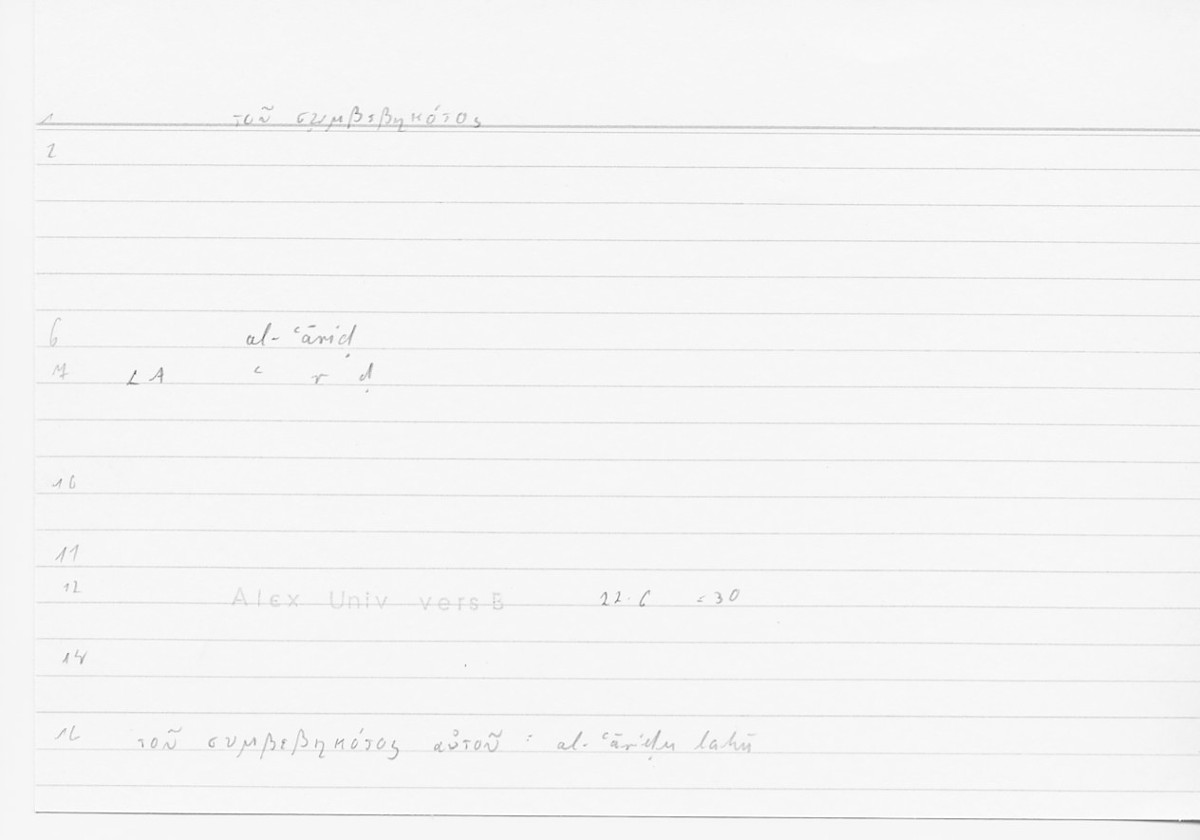 1 τοῦ συμβεβηκότος
2
6 al-ʿāriḍ
7 LA ʿ r ḍ
10
11
12 Alex Univ vers B 22.6 =30
14
16 τοῦ συμβεβηκότος αὐτοῦ : al-ʿāriḍu lahū